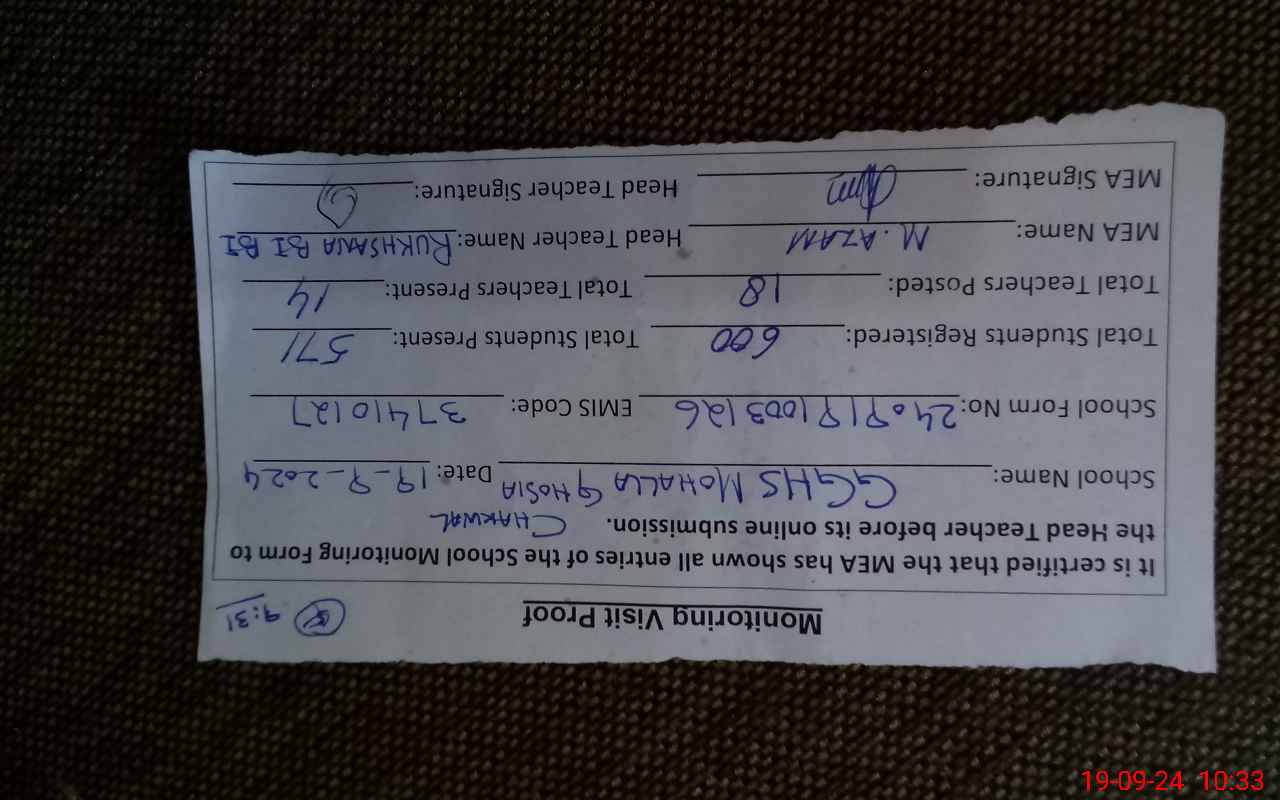 Monitoring Visit Proof 9:31
It is certified that the MEA has shown all entries of the School Monitoring Form to
the Head Teacher before its online submission. CHAKWAL
School Name: GGHS MOHALLA GHOSIA Date: 19-9-2024
School Form No: 2409191003126 EMIS Code: 37410127
Total Students Registered: 600 Total Students Present: 571
Total Teachers Posted: 18 Total Teachers Present: 14
MEA Name: M. AZAM Head Teacher Name: RUKHSANA BI BI
MEA Signature: Head Teacher Signature:
19-09-24 10:33